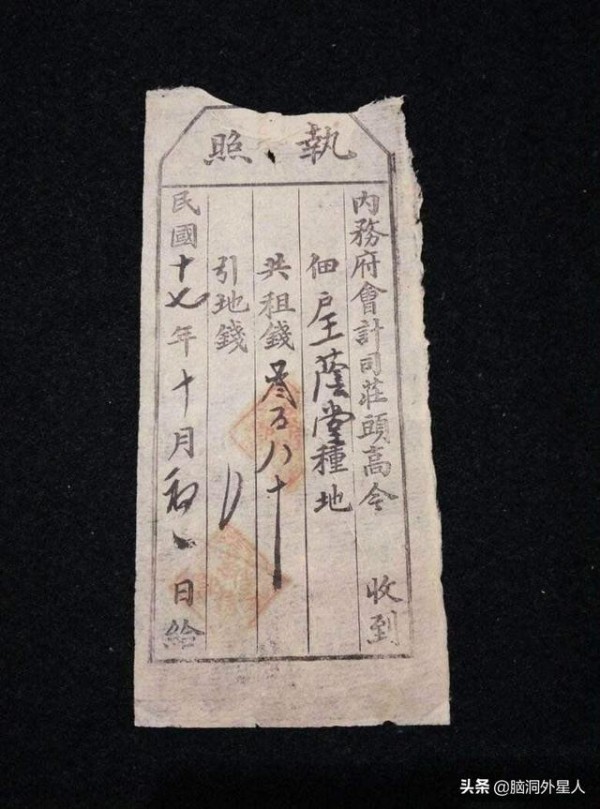 執照
內務府會計司莊頭高今 收到
佃戶王蔭堂種地
共租錢叁百八十
引地錢
民國十七年十月初 日給
头条 @脑洞外星人